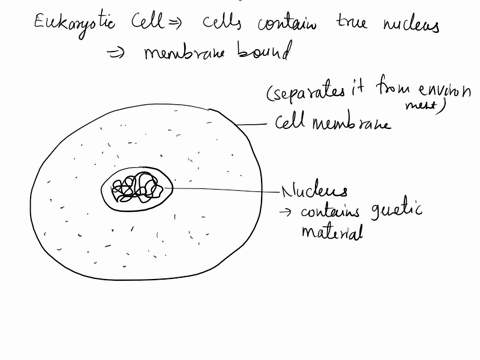 Eukaryotic Cell ⇒ cells contain true nucleus
⇒ membrane bound
(separates it from environ
ment)
Cell membrane
Nucleus
→ contains genetic
material